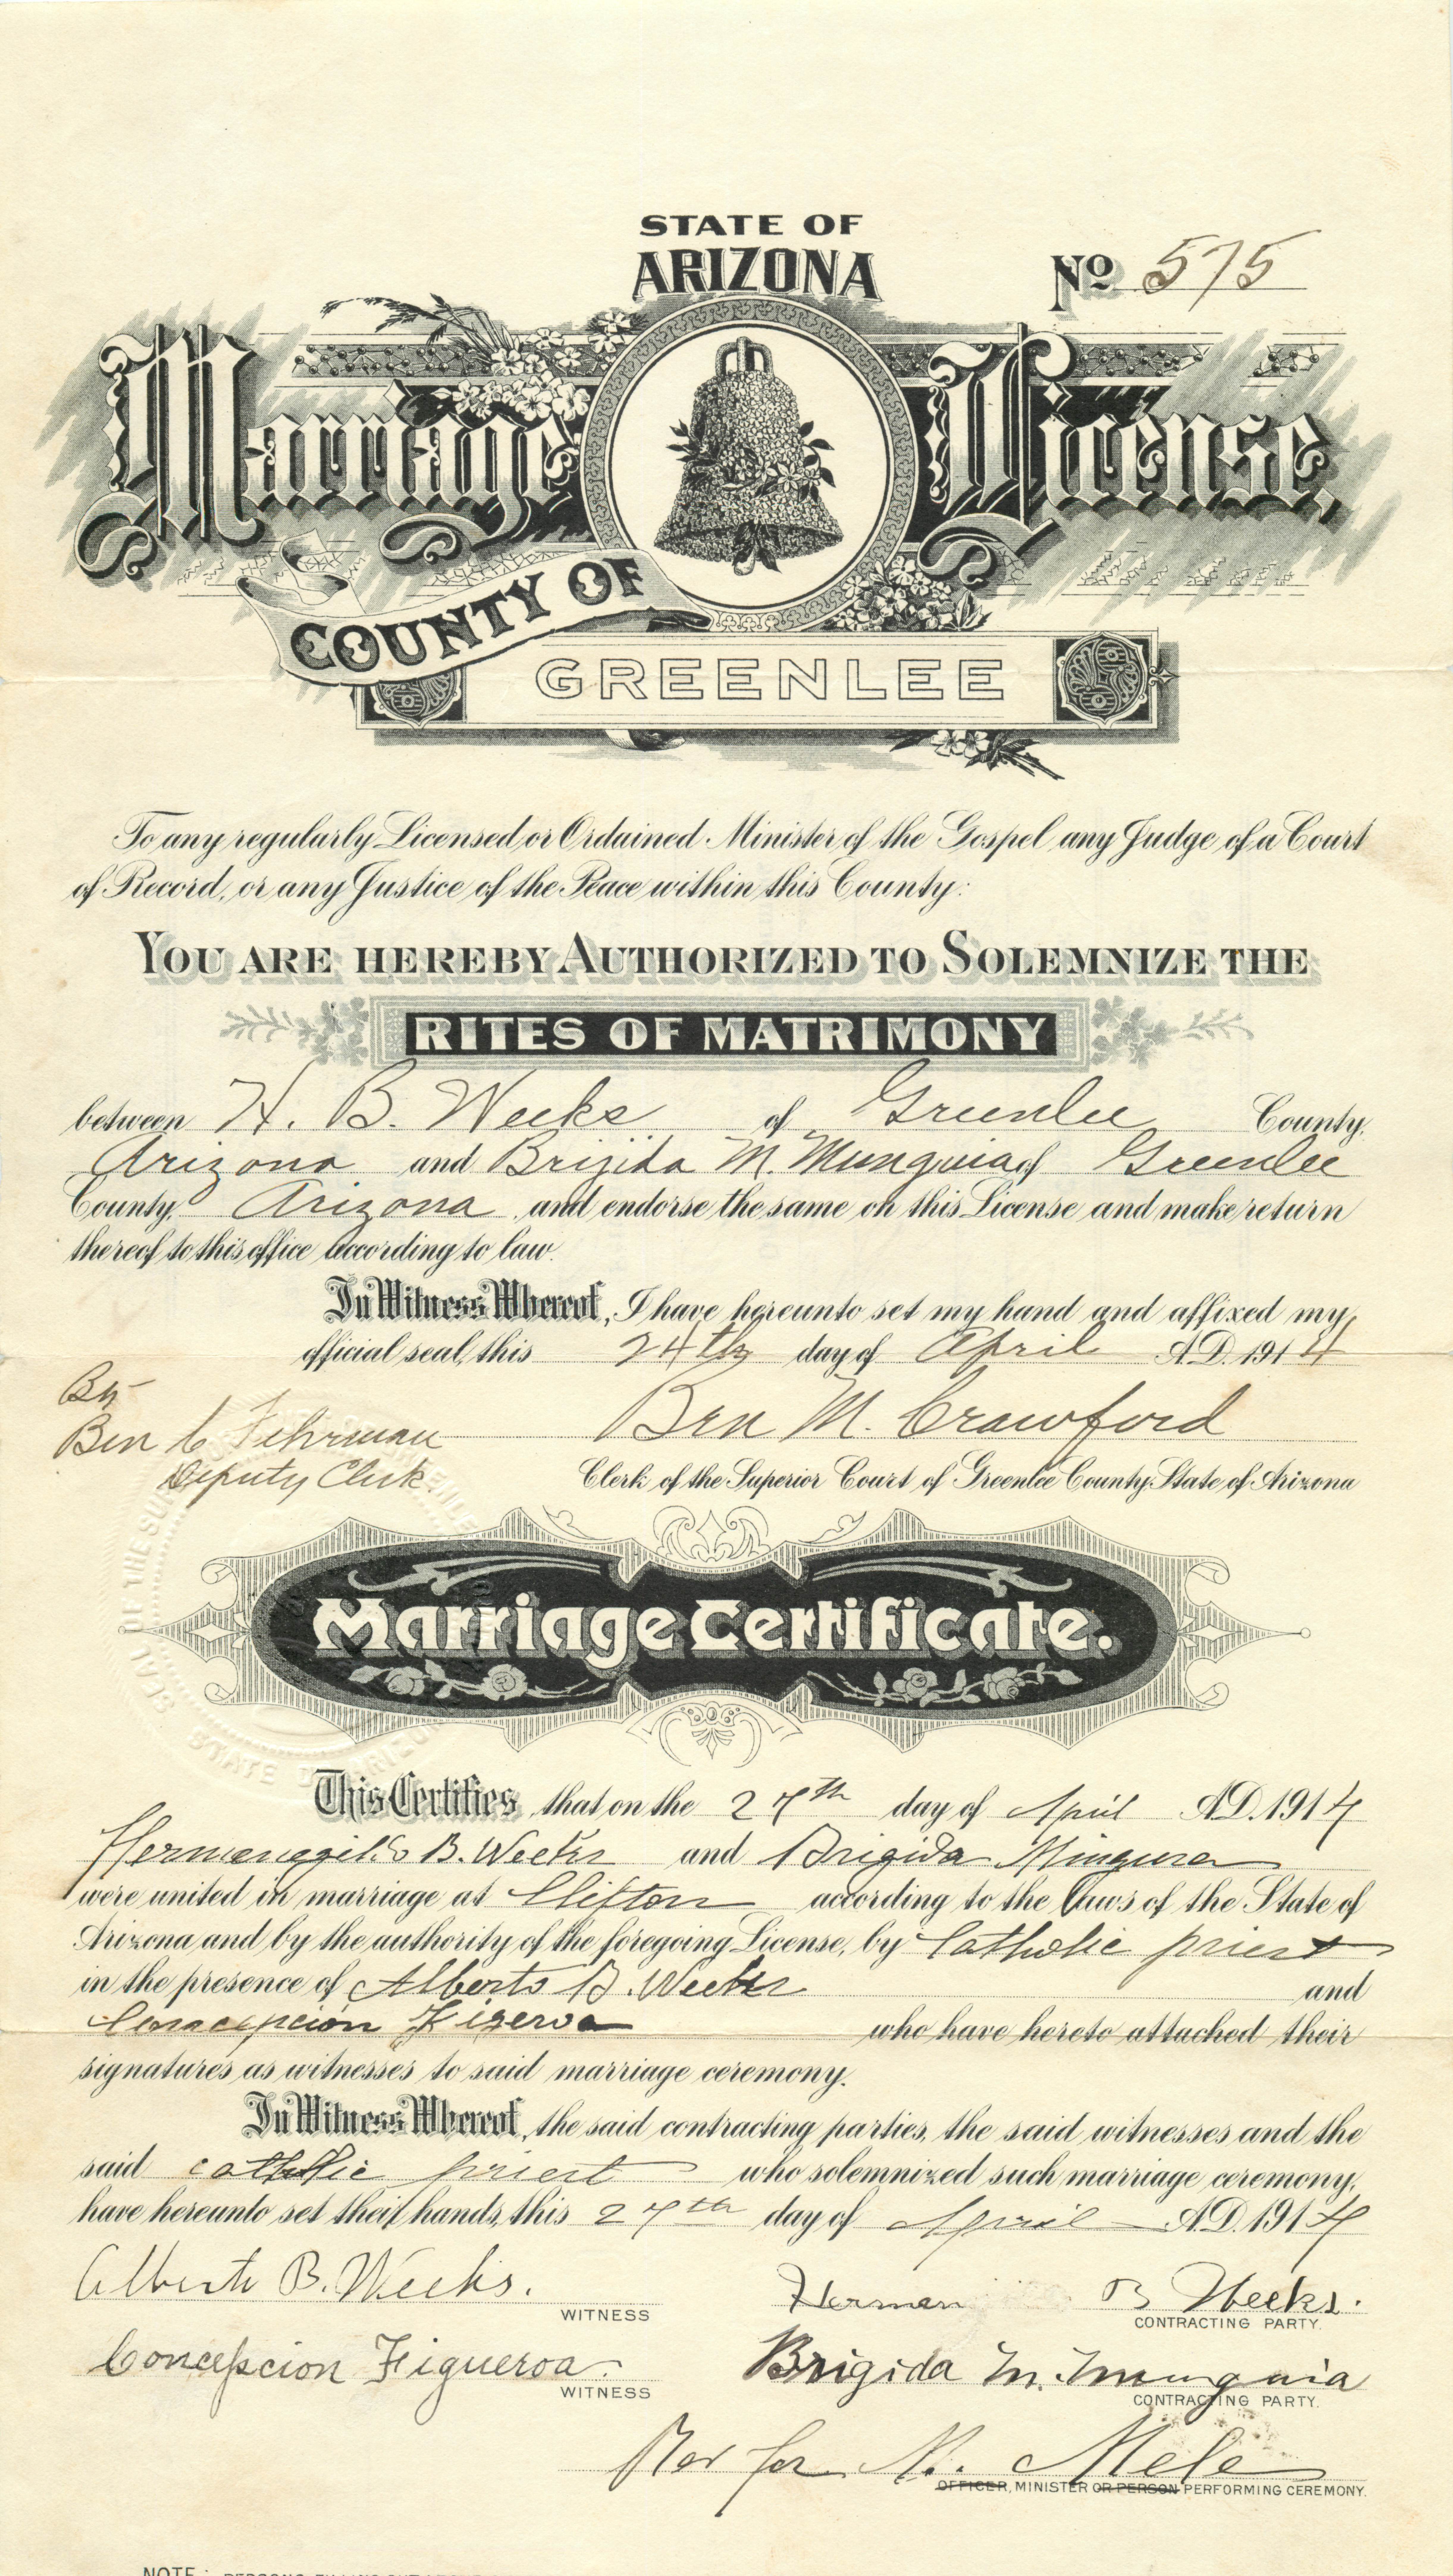 STATE OF
ARIZONA
No 575
Marriage License,
COUNTY OF
GREENLEE
To any regularly Licensed or Ordained Minister of the Gospel any Judge of a Court
of Record, or any Justice of the Peace within this County:
YOU ARE HEREBY AUTHORIZED TO SOLEMNIZE THE
RITES OF MATRIMONY
between H. B. Weeks of Greenlee County,
Arizona and Brijida M. Munguia of Greenlee
County, Arizona and endorse the same on this License and make return
thereof to this office according to law.
In Witness Whereof, I have hereunto set my hand and affixed my
official seal, this 24th day of April A.D. 1914
By
Ben C Fehrman Ben M. Crawford
Deputy Clerk. Clerk of the Superior Court of Greenlee County, State of Arizona
Marriage Certificate.
This Certifies that on the 27th day of April A.D. 1914
Hermenegildo B. Weeks and Brigida Mingura
were united in marriage at Clifton according to the Laws of the State of
Arizona and by the authority of the foregoing License, by Catholic priest
in the presence of Alberto B. Weeks and
Concepcion Figeroa who have hereto attached their
signatures as witnesses to said marriage ceremony.
In Witness Whereof, the said contracting parties, the said witnesses and the
said catholic priest who solemnized such marriage ceremony,
have hereunto set their hands, this 27th day of April A.D. 1914
Alberto B. Weeks. Herman B Weeks.
WITNESS CONTRACTING PARTY.
Concepcion Figueroa. Brigida M. Munguia
WITNESS CONTRACTING PARTY.
Mele
OFFICER, MINISTER OR PERSON PERFORMING CEREMONY.
NOTE: